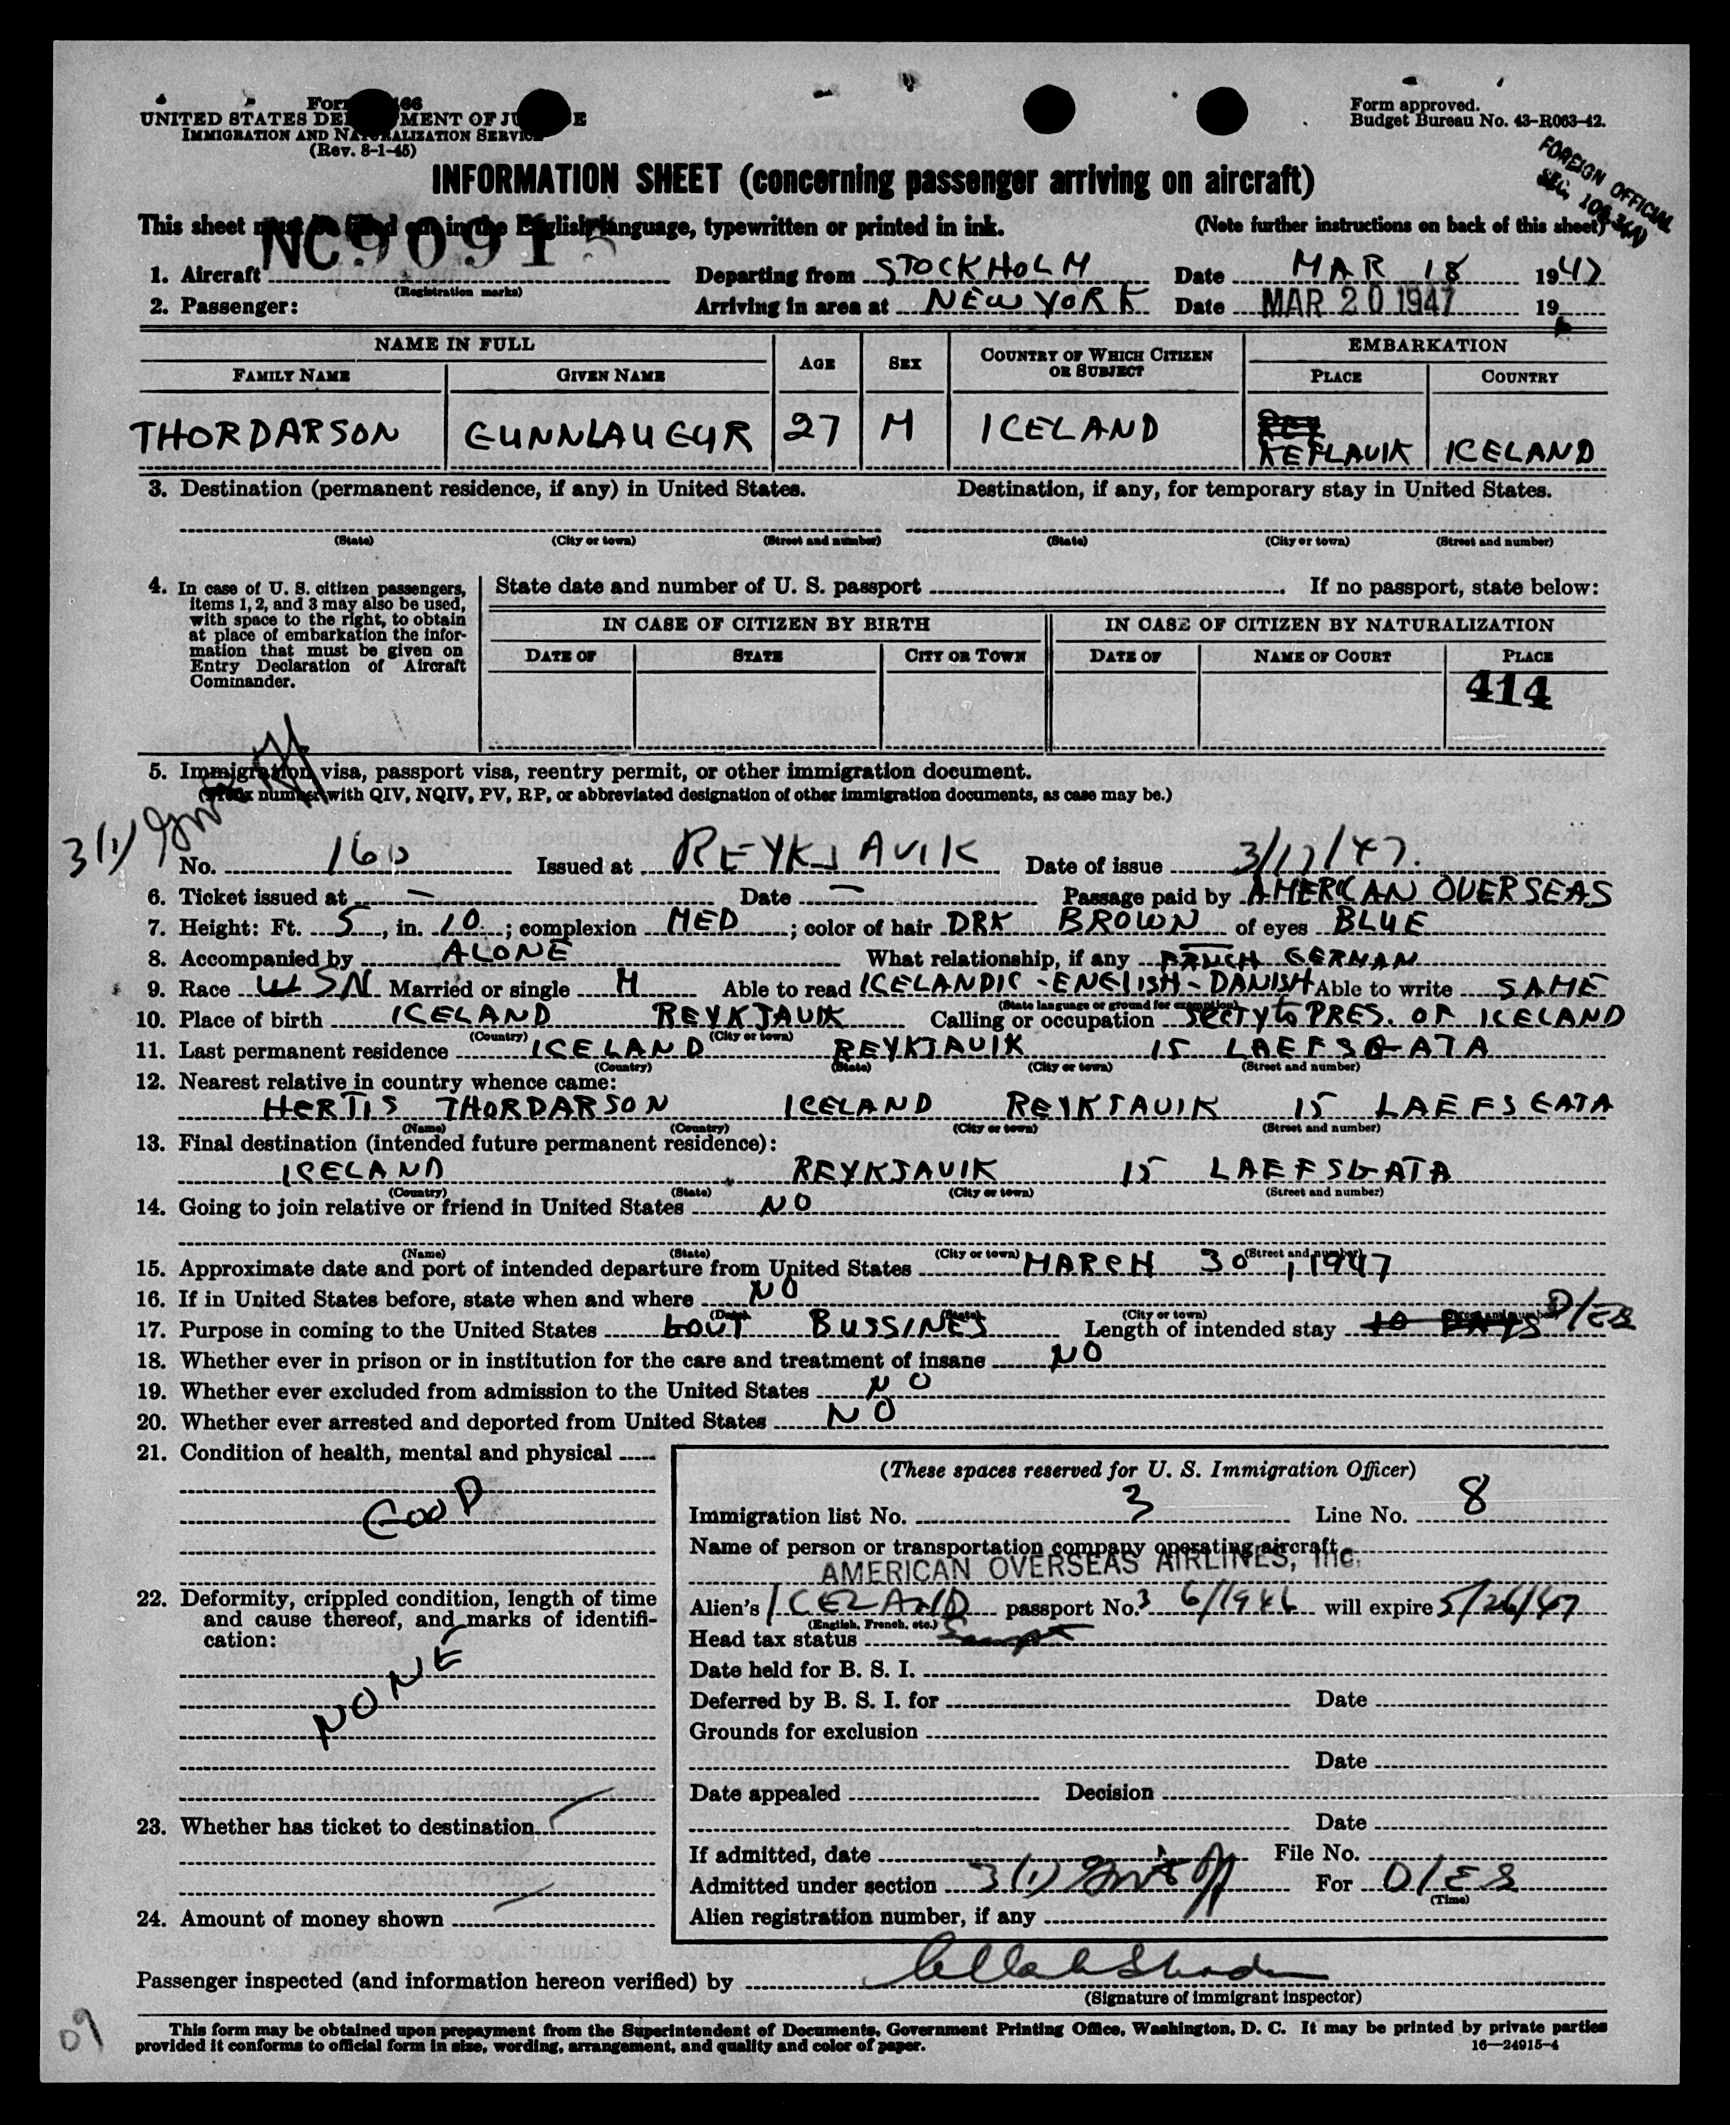 Form 466
UNITED STATES DEPARTMENT OF JUSTICE
IMMIGRATION AND NATURALIZATION SERVICE
(Rev. 8-1-45)
Form approved.
Budget Bureau No. 43-R063-42.
FOREIGN OFFICIAL
SEC.
INFORMATION SHEET (concerning passenger arriving on aircraft)
This sheet must be filled out in the English language, typewritten or printed in ink. (Note further instructions on back of this sheet)
1. Aircraft NC90915 (Registration marks) Departing from STOCKHOLM Date MAR 18 1947
2. Passenger: Arriving in area at NEW YORK Date MAR 20 1947 19
NAME IN FULL AGE SEX COUNTRY OF WHICH CITIZEN OR SUBJECT EMBARKATION
FAMILY NAME GIVEN NAME PLACE COUNTRY
THORDARSON GUNNLAUGUR 27 M ICELAND REY KEFLAVIK ICELAND
3. Destination (permanent residence, if any) in United States. Destination, if any, for temporary stay in United States.
(State) (City or town) (Street and number) (State) (City or town) (Street and number)
4. In case of U. S. citizen passengers, items 1, 2, and 3 may also be used, with space to the right, to obtain at place of embarkation the information that must be given on Entry Declaration of Aircraft Commander.
State date and number of U. S. passport If no passport, state below:
IN CASE OF CITIZEN BY BIRTH IN CASE OF CITIZEN BY NATURALIZATION
DATE OF STATE CITY OR TOWN DATE OF NAME OF COURT PLACE
414
5. Immigration visa, passport visa, reentry permit, or other immigration document.
(Prefix number with QIV, NQIV, PV, RP, or abbreviated designation of other immigration documents, as case may be.)
3(1)
No. 160 Issued at REYKJAVIK Date of issue 3/17/47.
6. Ticket issued at — Date — Passage paid by AMERICAN OVERSEAS
7. Height: Ft. 5, in. 10; complexion MED; color of hair DRK BROWN of eyes BLUE
8. Accompanied by ALONE What relationship, if any FRENCH GERMAN
9. Race WSN Married or single M Able to read ICELANDIC - ENGLISH - DANISH Able to write SAME
(State language or ground for exemption)
10. Place of birth ICELAND REYKJAVIK Calling or occupation SECTY to PRES. OF ICELAND
(Country) (City or town)
11. Last permanent residence ICELAND REYKJAVIK 15 LAEFSGATA
(Country) (State) (City or town) (Street and number)
12. Nearest relative in country whence came:
HERTIS THORDARSON ICELAND REYKJAVIK 15 LAEFSGATA
(Name) (Country) (City or town) (Street and number)
13. Final destination (intended future permanent residence):
ICELAND REYKJAVIK 15 LAEFSGATA
(Country) (State) (City or town) (Street and number)
14. Going to join relative or friend in United States NO
(Name) (State) (City or town) (Street and number)
15. Approximate date and port of intended departure from United States MARCH 30, 1947
16. If in United States before, state when and where NO
(Date) (State) (City or town) (Street and number)
17. Purpose in coming to the United States GOVT BUSSINES Length of intended stay 10 DAYS D/ES
18. Whether ever in prison or in institution for the care and treatment of insane NO
19. Whether ever excluded from admission to the United States NO
20. Whether ever arrested and deported from United States NO
21. Condition of health, mental and physical
GOOD
22. Deformity, crippled condition, length of time and cause thereof, and marks of identification:
NONE
23. Whether has ticket to destination
24. Amount of money shown
(These spaces reserved for U. S. Immigration Officer)
Immigration list No. 3 Line No. 8
Name of person or transportation company operating aircraft
AMERICAN OVERSEAS AIRLINES, Inc.
Alien's ICELAND passport No. 3 6/1946 will expire 5/26/47
(English, French, etc.)
Head tax status
Date held for B. S. I.
Deferred by B. S. I. for Date
Grounds for exclusion
Date
Date appealed Decision
Date
If admitted, date File No.
Admitted under section 3(1) Gov't Off For D/ES
(Time)
Alien registration number, if any
Passenger inspected (and information hereon verified) by
(Signature of immigrant inspector)
This form may be obtained upon prepayment from the Superintendent of Documents, Government Printing Office, Washington, D. C. It may be printed by private parties
provided it conforms to official form in size, wording, arrangement, and quality and color of paper. 16—24915-4